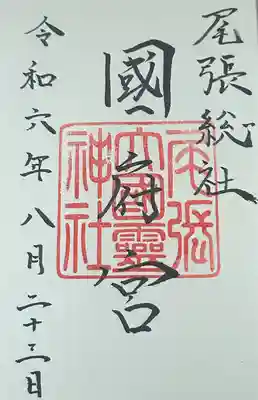 尾張総社
國府宮
尾張大國霊神社
令和六年八月二十三日